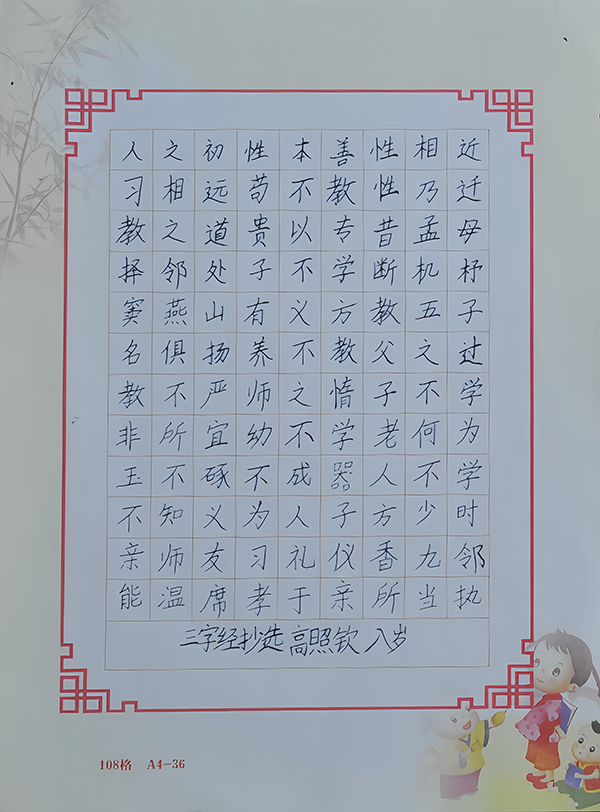 人之初性本善性相近
习相远苟不教性乃迁
教之道贵以专昔孟母
择邻处子不学断机杼
窦燕山有义方教五子
名俱扬养不教父之过
教不严师之惰子不学
非所宜幼不学老何为
玉不琢不成器人不学
不知义为人子方少时
亲师友习礼仪香九邻
能温席孝于亲所当执
三字经抄选 高照钦 八岁
108格 A4-36